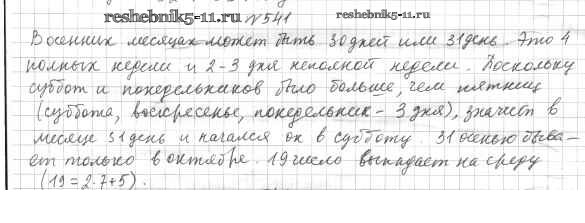 reshebnik5-11.ru
№541
reshebnik5-11.ru
В осенних месяцах может быть 30 дней или 31 день. Это 4
полных недели и 2-3 дня неполной недели. Поскольку
суббот и понедельников было больше, чем пятниц
(суббота, воскресенье, понедельник - 3 дня), значит в
месяце 31 день и начался он в субботу. 31 осенью быва-
ет только в октябре. 19 число выпадает на среду
(19=2·7+5).